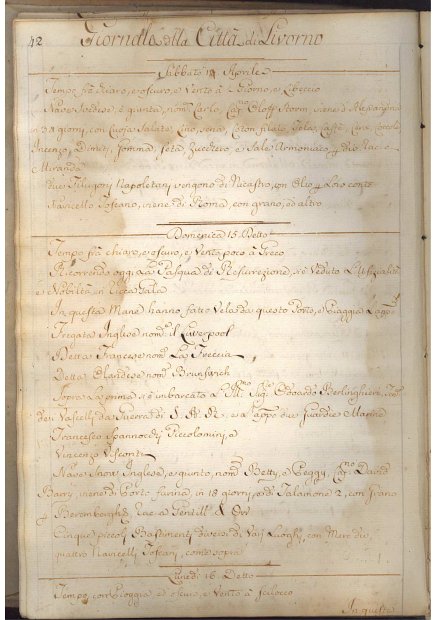 42 Giornale della Città di Livorno
Sabbato 14 Aprile
Tempo frà chiaro, e oscuro, e Vento à Giorno, e Libeccio
Nave Svedese, è giunta, nom: Carlo, Cap:no Oloff Storm viene d'
in 21 giorni, con Cuoja Salate, Lino, Sena, Coton filato, Tele, Caffè
Incenzo, Gomma, Seta, Zucchero, e Sale Armoniaco
Miranda
due Filugoni Napoletani vengono di Nicastro, con Olio p Loro conto
Navicello Toscano, viene di Roma, con grano, ed altro
Domenica 15. Detto
Tempo frà chiaro, e oscuro, e Vento poco à Greco
Ricorrendo oggi La Pasqua di Resurezione, si è Veduto L'Ufizialità
e Nobiltà in Gala
In questa Mane hanno fatto Vela da questo Porto, e Spiaggia
Fregata Inglese nom:ta il Liverpool
Detta Francese nom:ta La Freccia
Detta Olandese nom:ta Brunswich
Sopra La prima si è imbarcato L'Ill:mo Sig:re Edoardo Berlinghieri
de Vascelli da Guerra di S. A. R. e
Francesco Spannocchi Piccolomini, e
Vincenzo Visconti
Nave Snow Inglese, è giunto, nom: Betty, e Peggy, Cap:no David
Barry, viene di Porto farina, in 18 giorni, e di Talamone 2, con grano
p
Cinque piccoli Bastimenti diversi di Varj Luoghi, con Merc:
quattro Navicelli Toscani, come sopra
Lunedì 16 Detto
Tempo, con Pioggia, ed oscuro, e Vento à scilocco
In questa